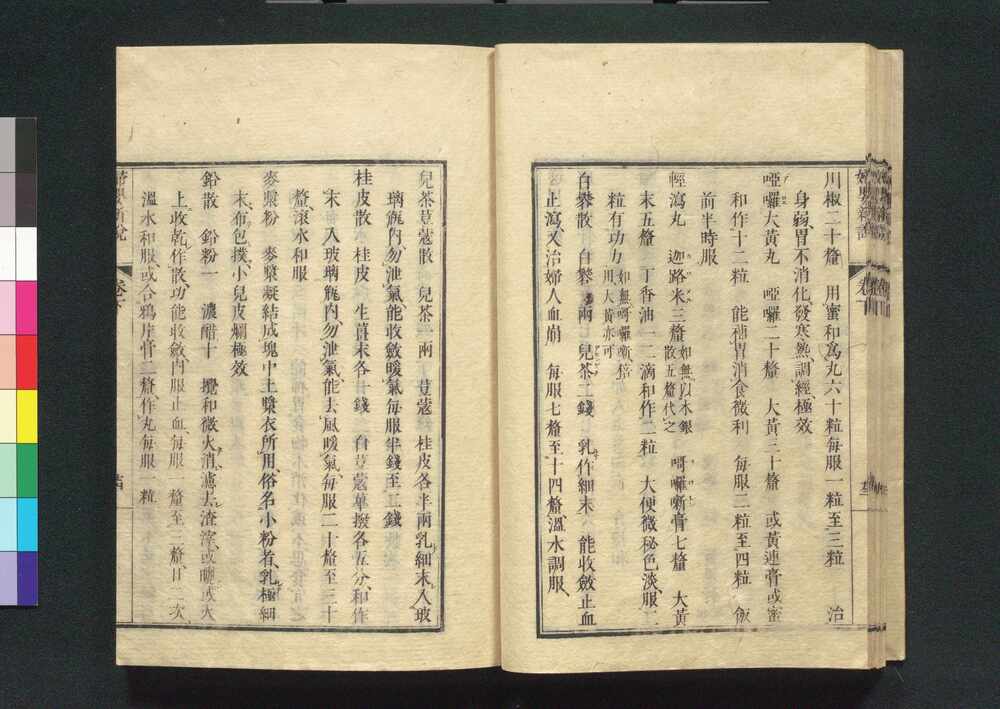 川椒二十釐　用蜜和為丸六十粒每服一粒至三粒　治
身弱胃不消化發寒熱調經極效
啞囉大黃丸　啞囉二十釐　大黃三十釐　或黃連膏或蜜
和作十二粒　能補胃消食微利　每服二粒至四粒　飯
前半時服
輕瀉丸　迦路米三釐如無以水銀散五釐代之　啊囉噺膏七釐　大黃
末五釐　丁香油一二滴和作二粒　大便微秘色淡服二
粒有功力如無啊囉噺倍用大黃亦可
白礬散　白礬一兩　兒茶二錢　乳作細末　能收斂止血
止瀉又治婦人血崩　每服七釐至十四釐溫水調服
兒茶荳蔻散　兒茶一兩　荳蔻　桂皮各半兩乳細末入玻
璃瓶內勿泄氣能收斂暖氣每服半錢至二錢
桂皮散　桂皮　生薑末各一錢　白荳蔻蓽撥各五分和作
末入玻璃瓶內勿泄氣能去風暖氣每服二十釐至三十
釐滾水和服
麥漿粉　麥漿凝結成塊中土漿衣所用俗名小粉者乳極細
末布包撲小兒皮爛極效
鉛散　鉛粉一　濃醋十　攪和微火消濾去渣滓或曬或火
上收乾作散功能收斂內服止血每服一釐至二釐日二次
溫水和服或合鴉片膏二釐作丸每服一粒